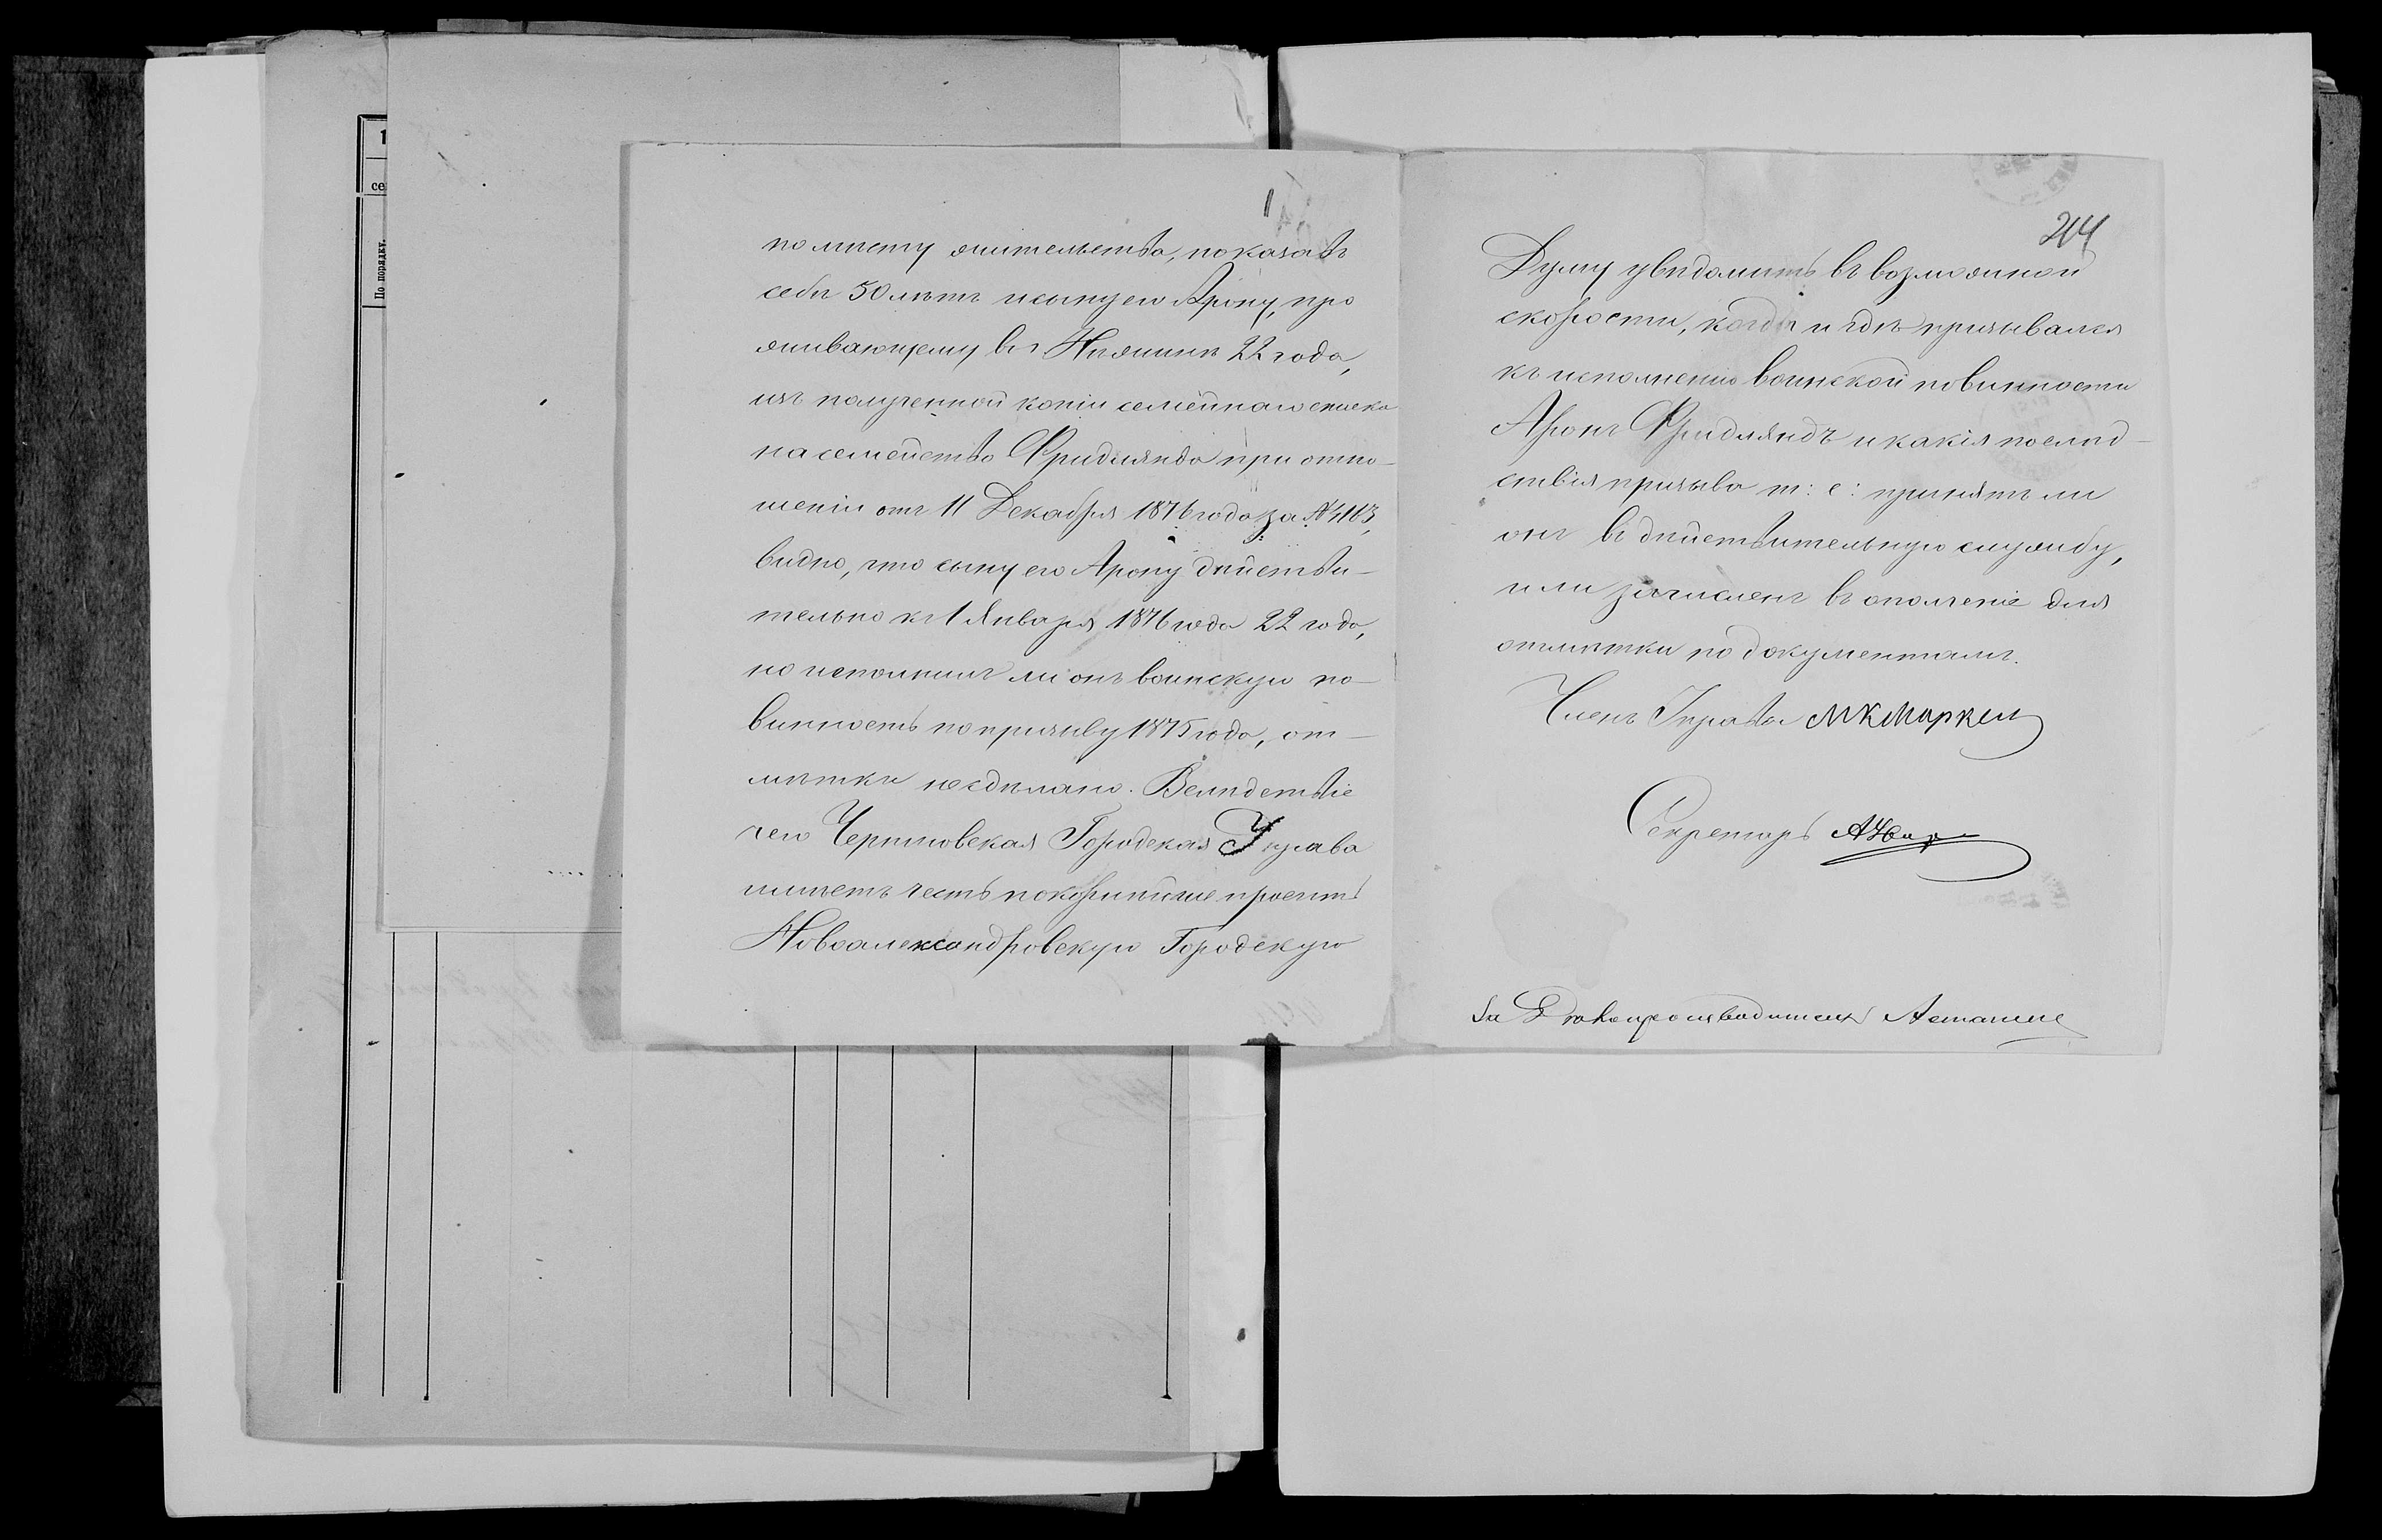 по мѣсту жительства, показавъ
себѣ 50 лѣтъ и сыну его Арону, про
живающему въ Нѣжинѣ 22 года,
изъ полученной копіи семейнаго списка
на семейство Фридлянда при отно-
шеніи отъ 11 Декабря 1876 года за № 4163,
видно, что сыну его Арону дѣйстви-
тельно къ 1 Января 1876 года 22 года,
но исполнилъ ли онъ воинскую по-
винность по призыву 1875 года, от-
мѣтки несдѣлано. Вслѣдствіе
чего Черниговская Городская Управа
имѣетъ честь покорнѣйше просить
Новоалександровскую Городскую
244
Думу увѣдомить въ возможной
скорости, когда и гдѣ призывался
къ исполненію воинской повинности
Аронъ Фридляндъ и какія послѣд-
ствія призыва т: е: принятъ ли
онъ въ дѣйствительную службу,
или зачисленъ въ ополченіе для
отмѣтки по документамъ.
Членъ Управы
Секретарь
За Дѣлопроизводителя
1
се
По порядку.